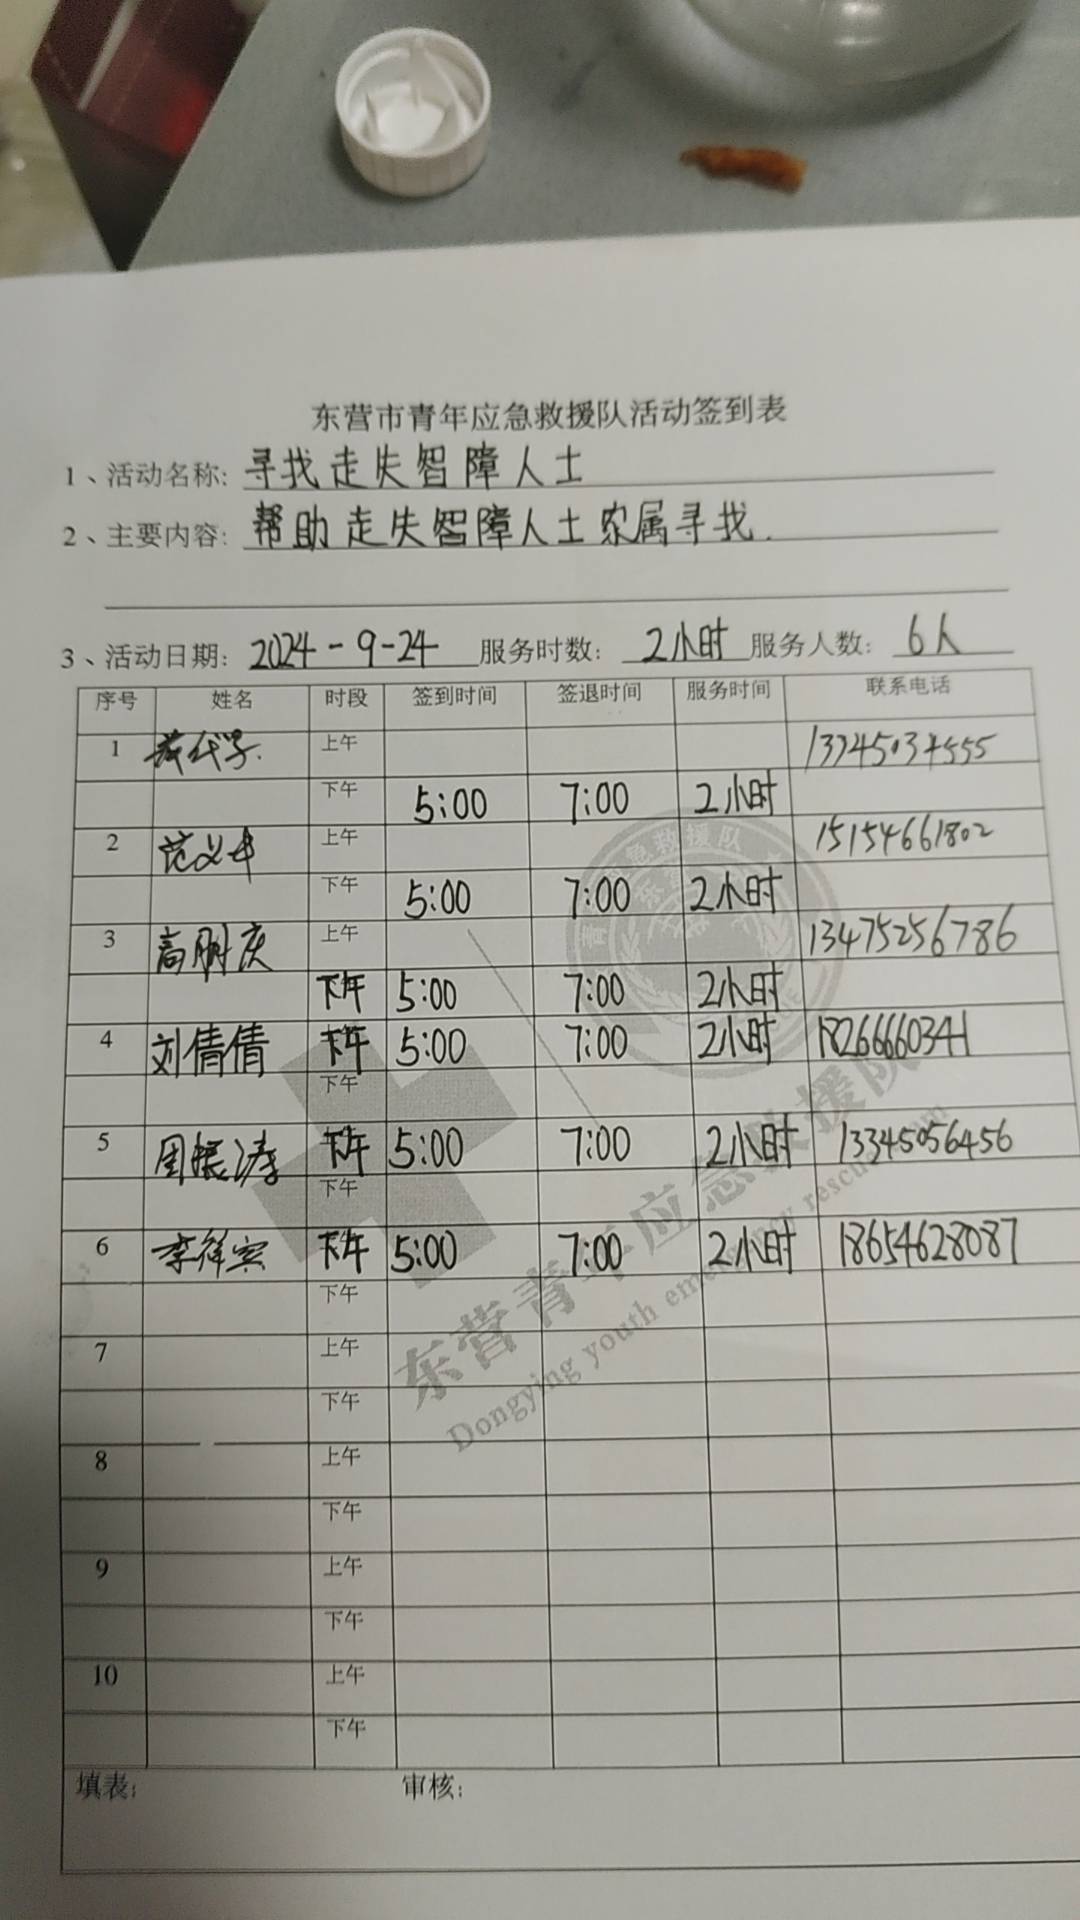 东营市青年应急救援队活动签到表
1、活动名称: 寻找走失智障人士
2、主要内容: 帮助走失智障人士家属寻找.
3、活动日期: 2024-9-24 服务时数: 2小时 服务人数: 6人
序号 姓名 时段 签到时间 签退时间 服务时间 联系电话
1 上午
下午 5:00 7:00 2小时
2 上午 15154661802
下午 5:00 7:00 2小时
3 高朋庆 上午 13475256786
下午 5:00 7:00 2小时
4 刘倩倩 下午 5:00 7:00 2小时 18266660341
下午
5 周振涛 下午 5:00 7:00 2小时 13345056456
下午
6 李祥宾 下午 5:00 7:00 2小时 18654628087
下午
7 上午
下午
8 上午
下午
9 上午
下午
10 上午
下午
填表: 审核:
东营青年应急救援队
Dongying youth emergency rescue team